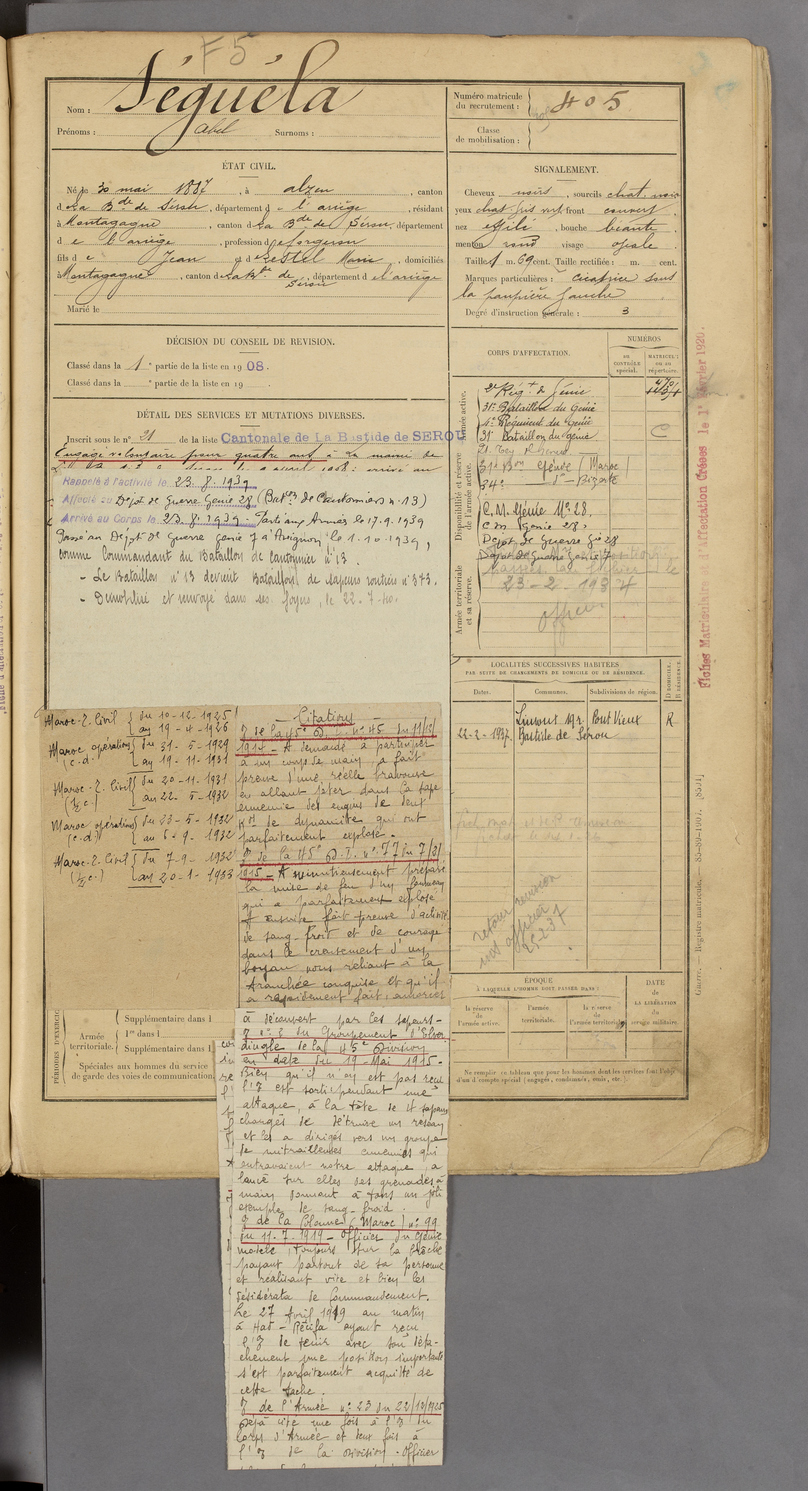 F 5
Nom : Séguéla
Prénoms : abel Surnoms :
Numéro matricule
du recrutement : 405
Classe
de mobilisation :
ÉTAT CIVIL.
Né le 30 mai 1887, à alzen, canton
d La Bde de Sérou, département d e l'ariège, résidant
à Montagagne, canton d La Bde de Sérou, département
d e l'ariège, profession de forgeron
fils d e Jean et d Restel Marie, domiciliés
à Montagagne, canton de La Bde de Sérou, département d e l'ariège
Marié le
SIGNALEMENT.
Cheveux noirs, sourcils chat. noir
yeux chat. front couvert,
nez effilé, bouche béante,
menton rond visage ovale.
Taille 1 m. 69 cent. Taille rectifiée : m. cent.
Marques particulières : cicatrice sous
la paupière gauche
Degré d'instruction générale : 3
DÉCISION DU CONSEIL DE REVISION.
Classé dans la 1e partie de la liste en 1908.
Classé dans la e partie de la liste en 19
DÉTAIL DES SERVICES ET MUTATIONS DIVERSES.
Inscrit sous le n° 21 de la liste Cantonale de La Bastide de SEROU
Engagé volontaire pour quatre ans à la mairie de
Rappelé à l'activité le 23.8.1939
Affecté au Dépôt de Guerre Génie 28 (Baton de Cantonniers n° 13)
Arrivé au Corps le 23.8.1939. Parti aux Armées le 17.9.1939
Passé au Dépôt de Guerre génie 7 d'Avignon le 1.10.1939,
comme Commandant du Bataillon de Cantonnier n° 13.
- Le Bataillon n° 13 devient Bataillon de sapeurs routiers n° 373.
- Démobilisé et renvoyé dans ses foyers, le 22-7-40.
CORPS D'AFFECTATION.
NUMÉROS
AU CONTRÔLE spécial.
MATRICULE ou au répertoire.
Armée active.
2e Régt de Génie
31e Bataillon du Génie
1er Régiment du Génie
31e Bataillon du Génie C
Disponibilité et réserve de l'armée active.
31e Bon Génie (Maroc)
34e - do - Bizerte
C.M. Génie No 28.
C M Génie 28,
Dépôt de Guerre Gie 28
Dépôt de Guerre Génie 7
Armée territoriale et sa réserve.
23-2-1937
officier
LOCALITÉS SUCCESSIVES HABITÉES
PAR SUITE DE CHANGEMENTS DE DOMICILE OU DE RÉSIDENCE.
Dates. Communes. Subdivisions de région. D DOMICILE. R RÉSIDENCE.
Limoux 19r. Pont Vieux R
22-2-1937. Bastide de Sérou
retour revision
not officier
25-2-37
Fiches Matriculaires d'Affectation Créées le 1er Février 1920.
Guerre. — Registre matricule.
Maroc-Z. Civil { du 10-12-1925
au 19-4-1926
Maroc opérations { du 31-5-1929
(c.d.) au 19-11-1931
Maroc-Z. Civil { du 20-11-1931
(½ c.) au 22-5-1932
Maroc opérations { du 23-5-1932
(c.d.) au 6-9-1932
Maroc-Z. Civil { du 7-9-1932
(½ c.) au 20-1-1933
Citations
de la 45e D.I. n° 45 du 11/2/
1914 - A demandé à participer
à un coup de main, a fait
preuve d'une réelle bravoure
en allant jeter dans la sape
ennemie des engins de neuf
Kos de dynamite qui ont
parfaitement explosé.
de la 45e D.I. n° 77 du 7/2/
1915 - A minutieusement préparé
la mise de feu d'un fourneau
qui a parfaitement explosé
A ensuite fait preuve d'activité
de sang-froid et de courage
dans le creusement d'un
boyau nous reliant à la
tranchée conquise et qu'il
a rapidement fait amorcer
à découvert par les sapeurs -
du Groupement d'Elver
dinghe de la 45e Division
en date du 19-Mai 1915-
Bien qu'il n'ay est pas reçu
l'O est sorti pendant une
attaque, à la tête de 4 sapeurs
chargés de détruire un réseau
et les a dirigés vers un groupe
de mitrailleuses ennemies qui
entravaient notre attaque, a
lancé sur elles ses grenades à
main donnant à tous un joli
exemple de sang-froid.
O de la Colonne (Maroc) n° 99
du 11.7.1919 - Officier du Génie
modèle, toujours sur la brèche
payant partout de sa personne
et réalisant vite et bien les
désidérata de Commandement.
Le 27 Avril 1919 au matin
ayant reçu
l'O de tenir avec son déta-
chement une position importante
s'est parfaitement acquitté de
cette tâche.
O de l'Armée n° 23 du 22/12/1925
Déjà cité une fois à l'O du
Corps d'Armée et deux fois à
l'O de la Division. Officier
PÉRIODES D'EXERCICE
Armée territoriale.
Supplémentaire dans l
1re dans l
Supplémentaire dans l
Spéciales aux hommes du service
de garde des voies de communication,
ÉPOQUE
À LAQUELLE L'HOMME DOIT PASSER DANS :
la réserve de l'armée active.
l'armée territoriale.
la réserve de l'armée territoriale.
DATE
de
LA LIBÉRATION
du service militaire.
Ne remplir ce tableau que pour les hommes dont les services font l'objet
d'un décompte spécial (engagés, condamnés, omis, etc.)